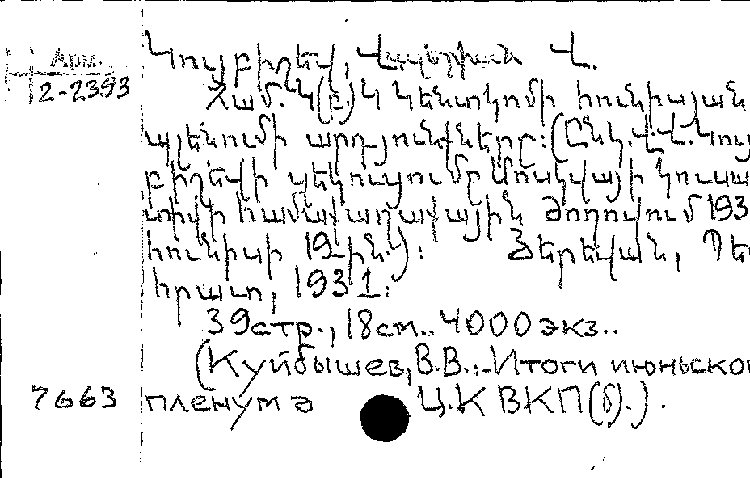 Арм.
2-2393
Կույբիշեվ, Վալերիան Վ.
Համ. Կ(բ)Կ Կենտկոմի հունիսյան
պլենումի արդյունքները: (Ընկ. Վ. Վ. Կույ
բիշեվի զեկուցումը Մոսկվայի կուսա
տիվի համաքաղաքային ժողովում 193
հունիսի 19-ին.): Յերեվան, Պե
հրատ, 1931:
39 стр., 18 см.. 4000 экз..
(Куйбышев, В.В.:-Итоги июньског
7663 пленума ЦК ВКП(б).).